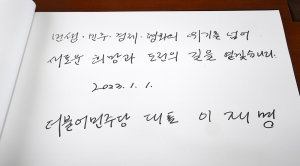 민생·민주·경제·평화의 위기를 넘어
새로운 희망과 도전의 길을 열겠습니다.
2023. 1. 1.
더불어민주당 대표 이 재 명